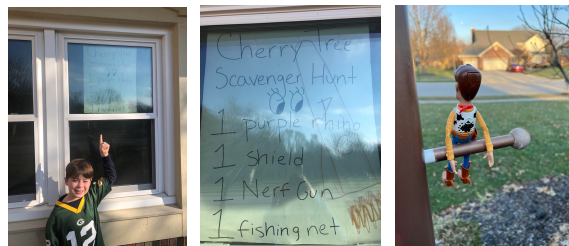 12
Cherry Tree
Scavenger Hunt
1 purple rhino
1 shield
1 Nerf Gun
1 fishing net